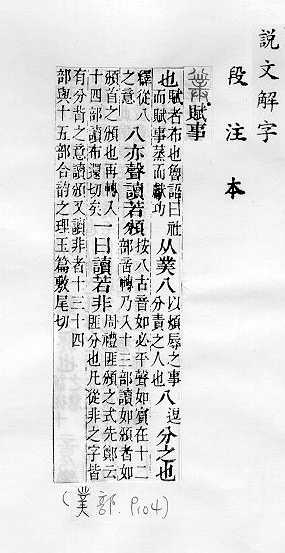 説文解字
段注本
賦事
也賦者布也魯語曰社而賦事蒸而獻功从菐八以煩辱之事分責之人也八逗分之也
釋從八之意八亦聲讀若頒按八古音如必平聲如賓在十二部音轉乃入十三部讀如頒者如
頒首之頒也再轉入十四部讀布還切矣一曰讀若非周禮匪頒之式先鄭云匪分也凡從非之字皆
有分背之意讀頒又讀非者十三十四部與十五部合韵之理玉篇敷尾切
(菐部.P104)